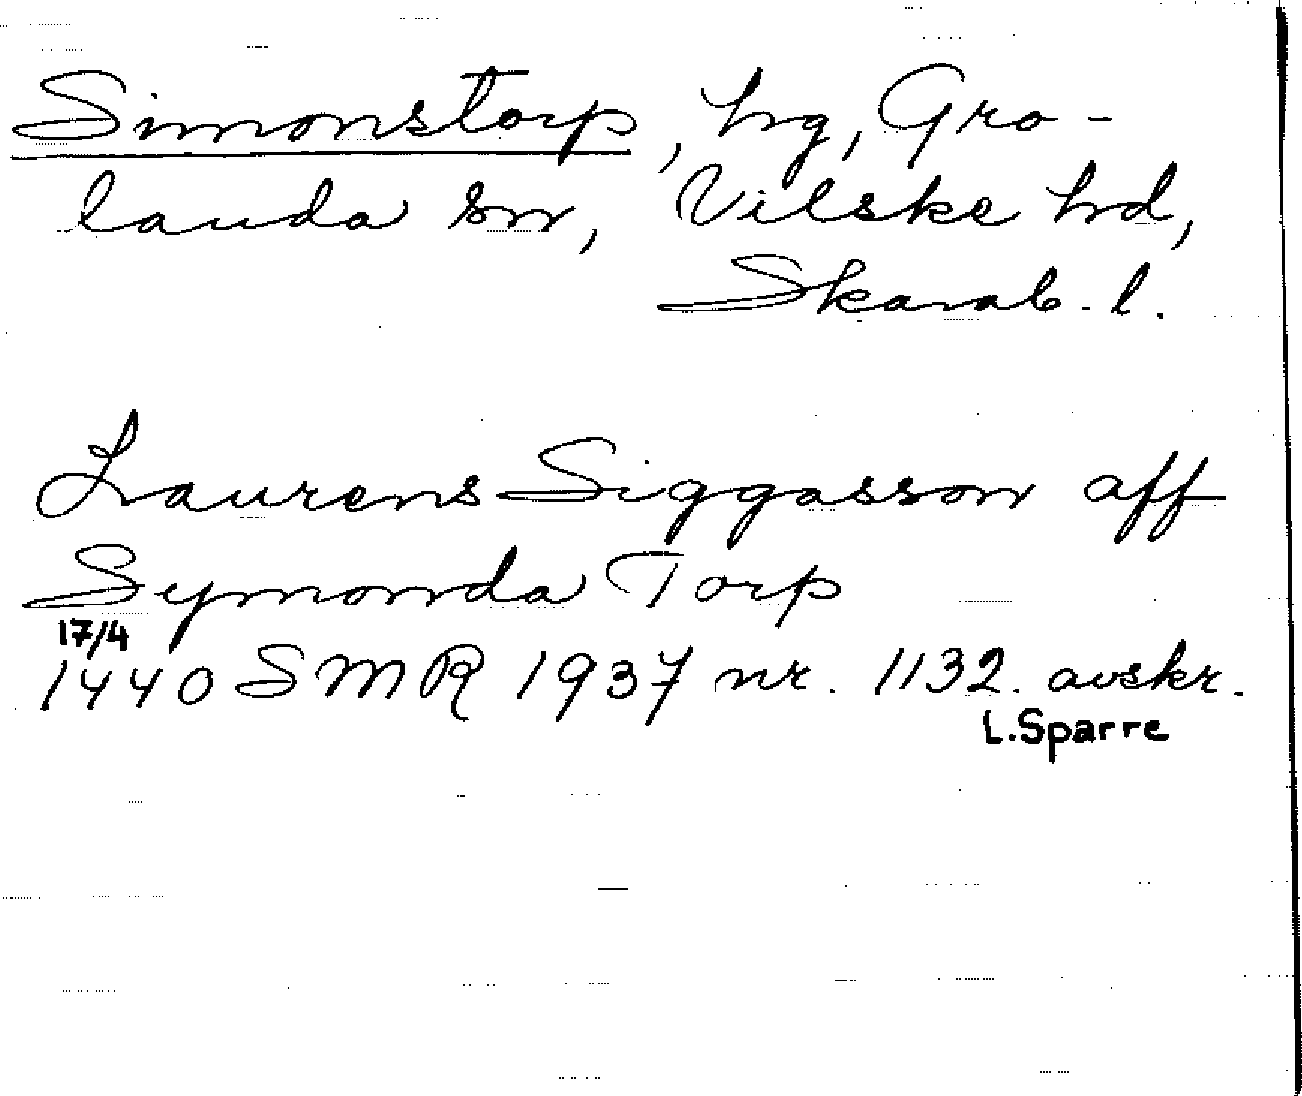 Simonstorp, hg, Gro-
landa sn, Vilske hd,
Skarab. l.
Laurens Siggasson aff
Symonda Torp
17/4
1440 SMR 1937 nr. 1132. avskr.
L. Sparre